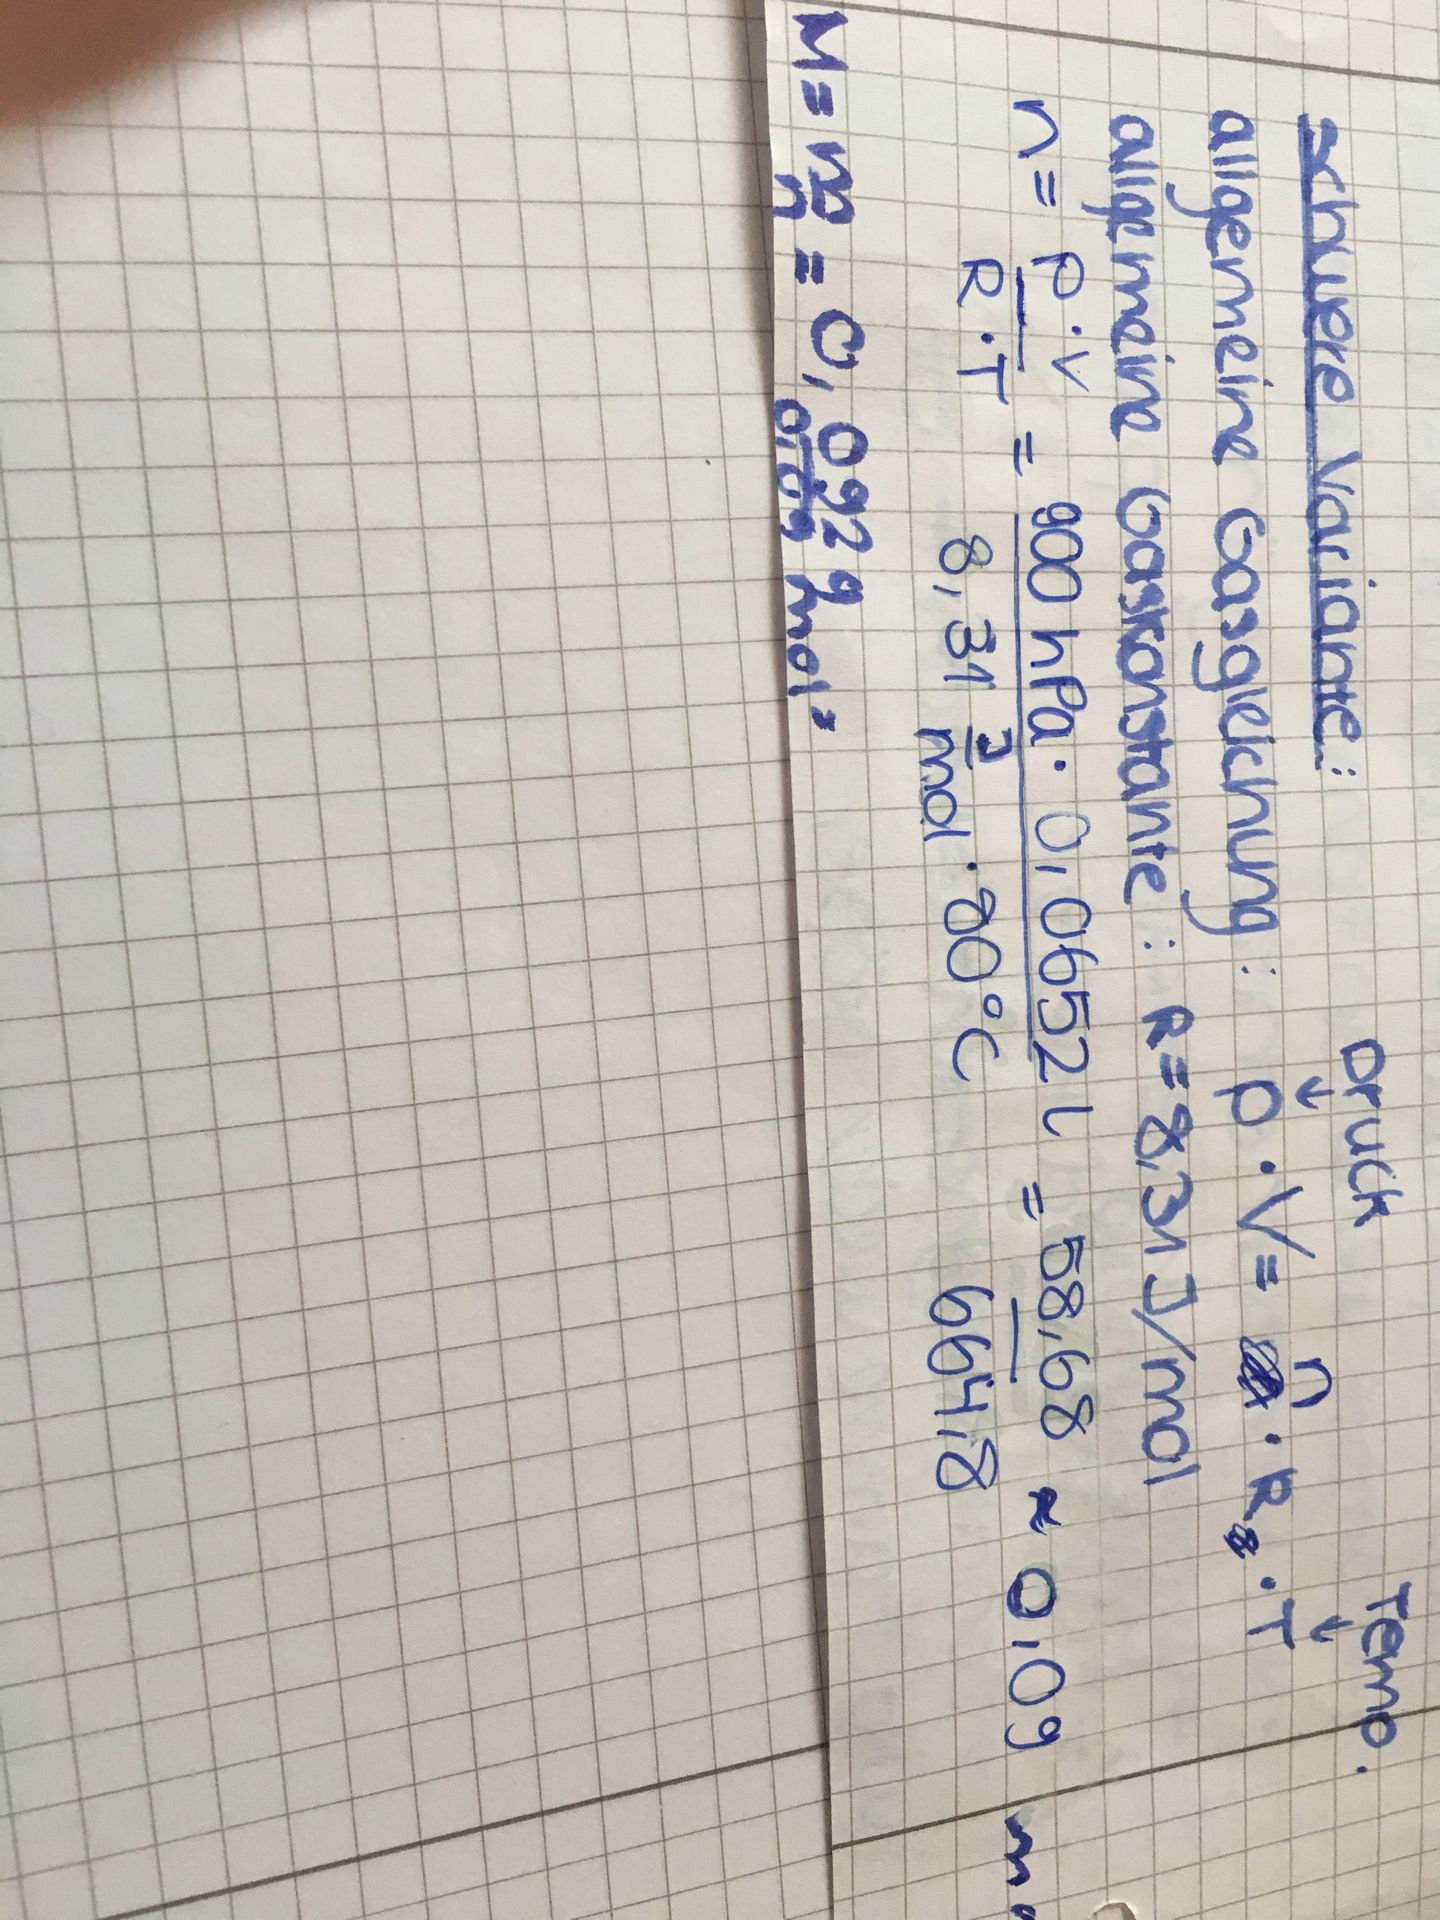 schwere Variante:
Druck Temp.
↓ ↓
allgemeine Gasgleichung: p · V = n · R · T
allgemeine Gaskonstante: R = 8,31 J/mol
n = p · V / R · T = 900 hPa · 0,0652 L / 8,31 J/mol · 80°C = 58,68 / 664,8 ≈ 0,09 m
M = m / n = 0,092 g / 0,09 mol =